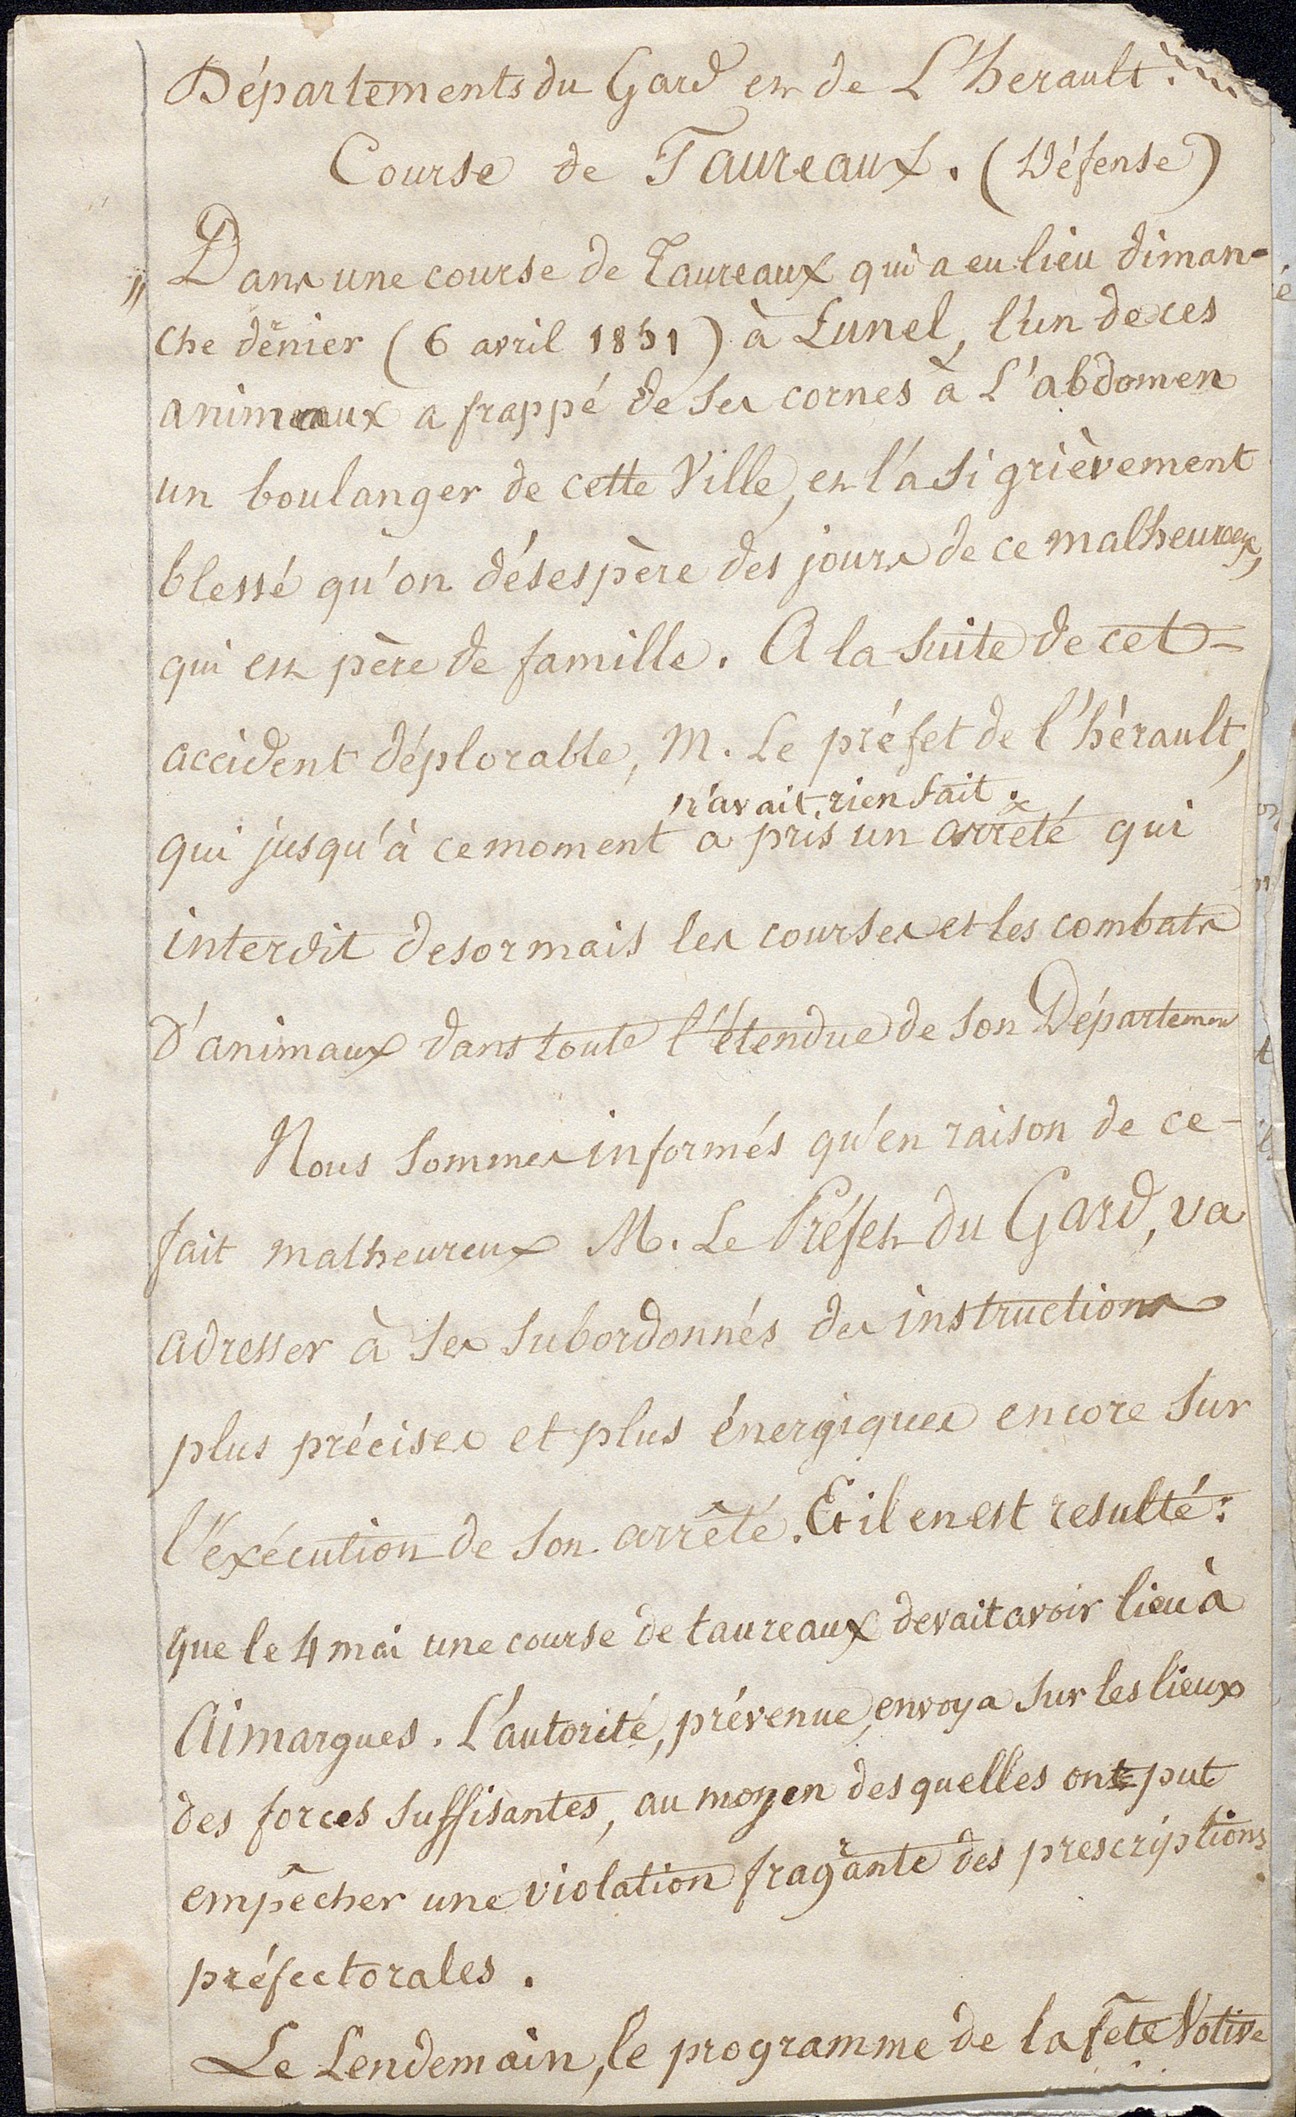 Départements du Gard et de L'herault.
Course de Taureaux. (Défense)
" Dans une course de Taureaux qui a eu lieu diman-
che dernier (6 avril 1851) à Lunel, l'un de ces
animaux a frappé de ses cornes à L'abdomen
un boulanger de cette Ville, et l'a si grièvement
blessé qu'on désespère des jours de ce malheureux,
qui est père de famille. A la suite de cet
accident déplorable, M. Le préfet de l'hérault,
n'avait rien fait.
qui jusqu'à ce moment a pris un arrêté qui
interdit desormais les courses et les combats
D'animaux dans toute l'étendue de son Département
Nous sommes informés qu'en raison de ce
fait malheureux M. Le Préfet du Gard, va
adresser à ses subordonnés des instructions
plus précises et plus énergiques encore sur
l'exécution de son arrêté. Et il en est resulté:
que le 4 mai une course de taureaux devait avoir lieu à
Aimargues. L'autorité, prévenue, envoya sur les lieux
des forces suffisantes, au moyen desquelles ont put
empêcher une violation fragrante des prescriptions
préfectorales.
Le Lendemain, le programme de la fête Votive